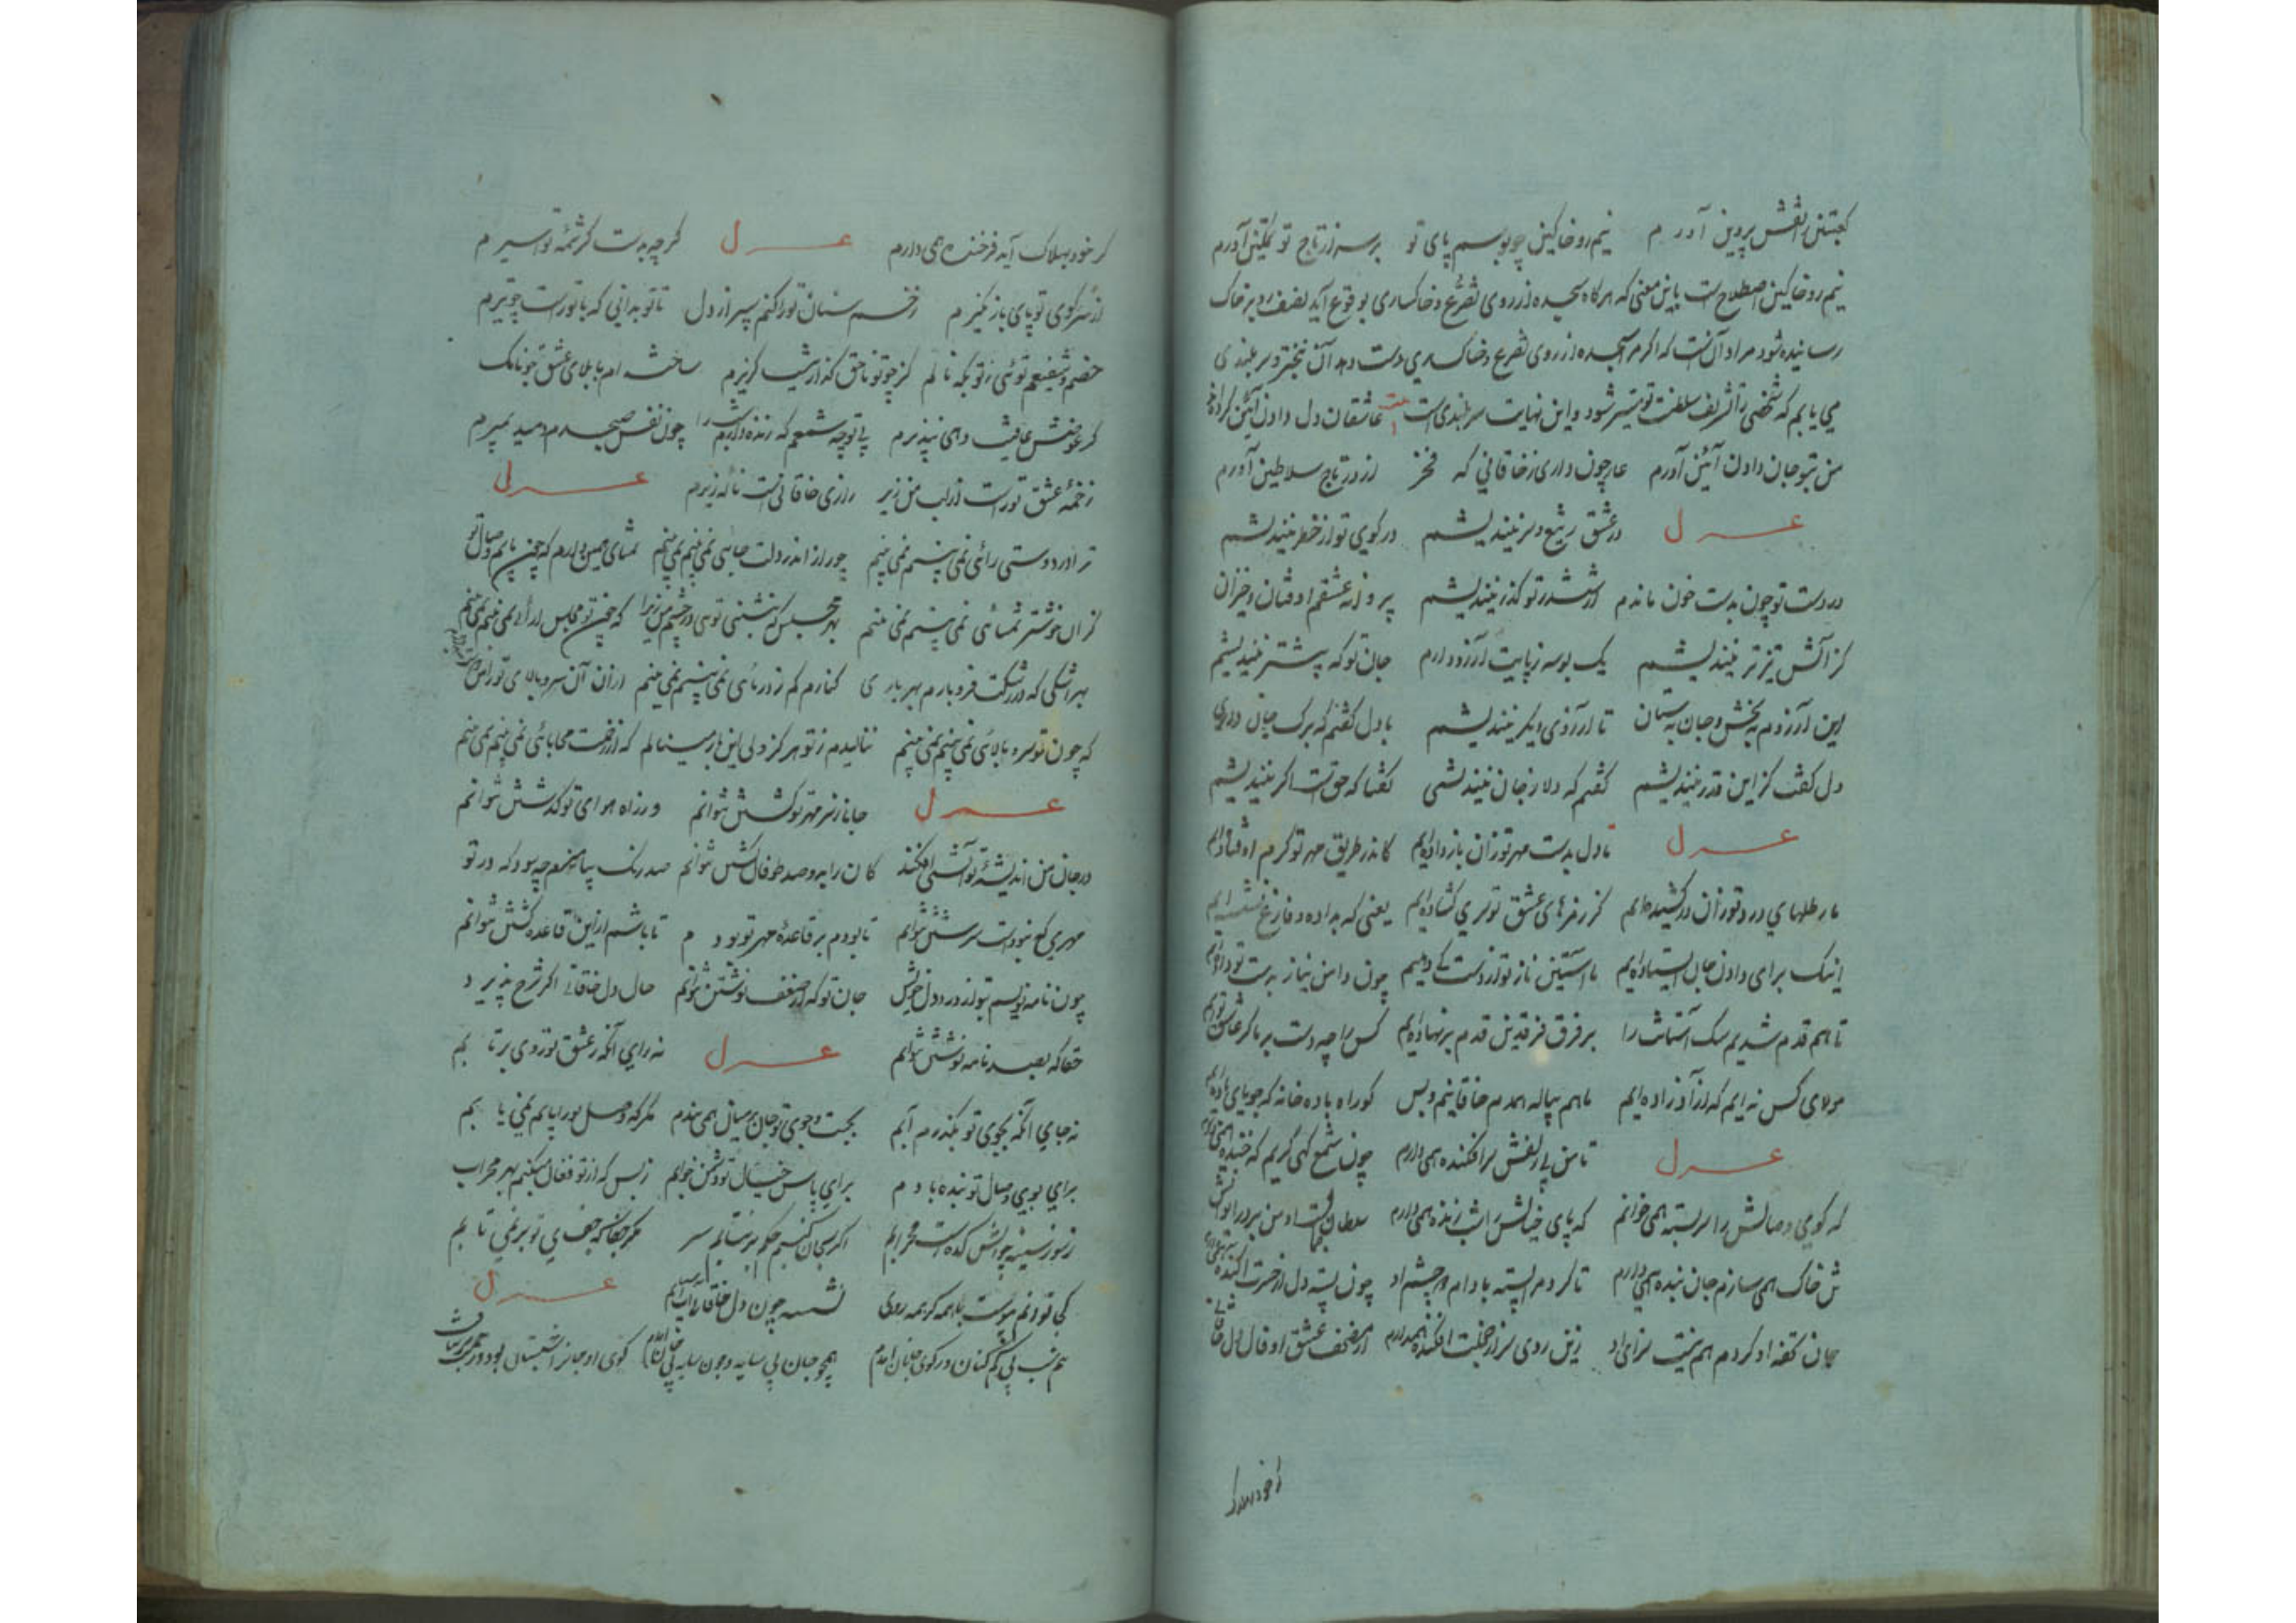 کعبتین از نقش پروین آورم نیم رو خاکین چو بوسم پای تو بر سر از تاج تو تمکین آورم
نیم رو خاکین اصطلاح است باین معنی که هرگاه سجده از روی تضرع و خاکساری بوقوع آید نصف رو بر خاک
رسانیده شود مراد آن است که اگر مرا سجده از روی تضرع و خاکساری دست دهد آن تبختر و سربلندی
می یابم که شخصی را تشریف سلطنت تو میسر شود و این نهایت سربلندی است عاشقان دل دادن آئین کرده اند
من بتو جان دادن آئین آورم عار چون داری ز خاقانی که فخر از در تاج سلاطین آورم
غزل در عشق ز تیغ و سر نیندیشم در کوی تو از خطر نیندیشم
در دست تو چون بدست خون ماندم از ششدر تو گذر نیندیشم پروانه عشقم اوفتان و خیزان
کز آتش تیزتر نیندیشم یک بوسه ز پایت آرزو دارم جان تو که بیشتر نیندیشم
این آرزوم ببخش و جان بستان تا آرزوی دیگر نیندیشم با دل گفتم که برگ جان داری
دل گفت کز این قدر نیندیشم گفتم که دلا ز جان نیندیشی گفتا که حق است اگر نیندیشم
غزل تا دل بدست مهر تو زان باز داده ایم کاندر طریق مهر تو گرم اوفتاده ایم
ما رطلهای درد تو زان در کشیده ایم کز رمزهای عشق تو سری گشاده ایم یعنی که بداده و فارغ نشسته ایم
اینک برای دادن جان ایستاده ایم ما آستین ناز تو از دست کی دهیم چون دامن نیاز بدست تو داده ایم
تا هم قدم شدیم سگ آستانت را بر فرق فرقدین قدم بر نهاده ایم کس را چه دست بر ما گر عاشق توایم
مولای کس نه ایم که از آزاده ایم ما هم پیاله همدم خاقانیم و بس کو راه باده خانه که جویای باده ایم
غزل تا من پی زلفش سر افکنده همی دارم چون شمع گهی گریم که خنده همی دارم
که گوی وصالش را سربسته همی خوانم که پای خیالش را شب زنده همی دارم سلطان جمال است او من بر در ایوانش
تن خاک همی سازم جان بنده همی دارم تا کرد مرا بسته بادام دو چشم او چون پسته دل از حسرت آکنده همی دارم
جان تحفه او کردم هم نیست سزای او زین روی سر از خجلت افکنده همی دارم از مصحف عشق او فال دل خاقانی
گر خود بهلاک
گر خود بهلاک آید فرخنده همی دارم غزل گرچه بدست کرشمه تو اسیرم
از سر کوی تو پای باز نگیرم زخم سنان تو را کنم سپر از دل تا تو بدانی که با تو راست چو تیرم
خصم و شفیعم توئی ز تو بکه نالم کز چو تو ناحق گذار نیست گریزم ساخته ام با بلای عشق چو نانک
گر عوضش عافیت دهی نپذیرم بی تو چو شمعم که زنده دارم شب را چون نفس صبح دم دمید بمیرم
زخمه عشق تو راست از لب من زیر زاری خاقانی است ناله زیرم غزل
ترا در دوستی رائی نمی بینم نمی بینم چو راز اندر دلت جائی نمی بینم نمی بینم تمنای همین دارم که چون یابم وصال تو
کزان خوشتر تمنائی نمی بینم نمی بینم بهر مجلس که بنشینی توئی در چشم من زیرا که چون تو مجلس آرائی نمی بینم نمی بینم
بهر اشکی که در رشکت فرو بارم بهر باری کنارم کم ز دریائی نمی بینم نمی بینم
که چون تو سرو بالائی نمی بینم نمی بینم ننالیدم ز تو هرگز ولی این بار مینالم که از زخمت محابائی نمی بینم نمی بینم
غزل جانا ز سر مهر تو گشتن نتوانم وز راه هوای تو گذشتن نتوانم
در جان من اندیشه تو آتشی افکند کان را بدو صد طوفان کشتن نتوانم صد رنگ بیامیزم چه سود که در تو
مهری که نبوده است سرشتن نتوانم تا بودم بر قاعده مهر تو بودم تا باشم از این قاعده گشتن نتوانم
چون نامه نویسم بتو از درد دل خویش جان تو که از ضعف نوشتن نتوانم حال دل خاقانی اگر شرح پذیرد
حقا که بصد نامه نوشتن نتوانم غزل نه رای آنکه ز عشق تو روی برتابم
نه جای آنکه بجوی تو بگذرد آبم بجست و جوی تو جان بر میان همی بندم مگر که وصل تو دریابم نمی یابم
برای بوی وصال تو بنده بادم برای پاس خیال تو دشمن خوابم ز بس که از تو فغان میکنم بهر محراب
ز سوز سینه چو آتش کده است محرابم اگر بجان کنیم حکم بر نتابم سر مگر جفا که جفای تو بر نمی تابم
غزل
نیم شب پی گم کنان در کوی جانان آمدم همچو جان بی سایه و چون سایه بی جان آمدم